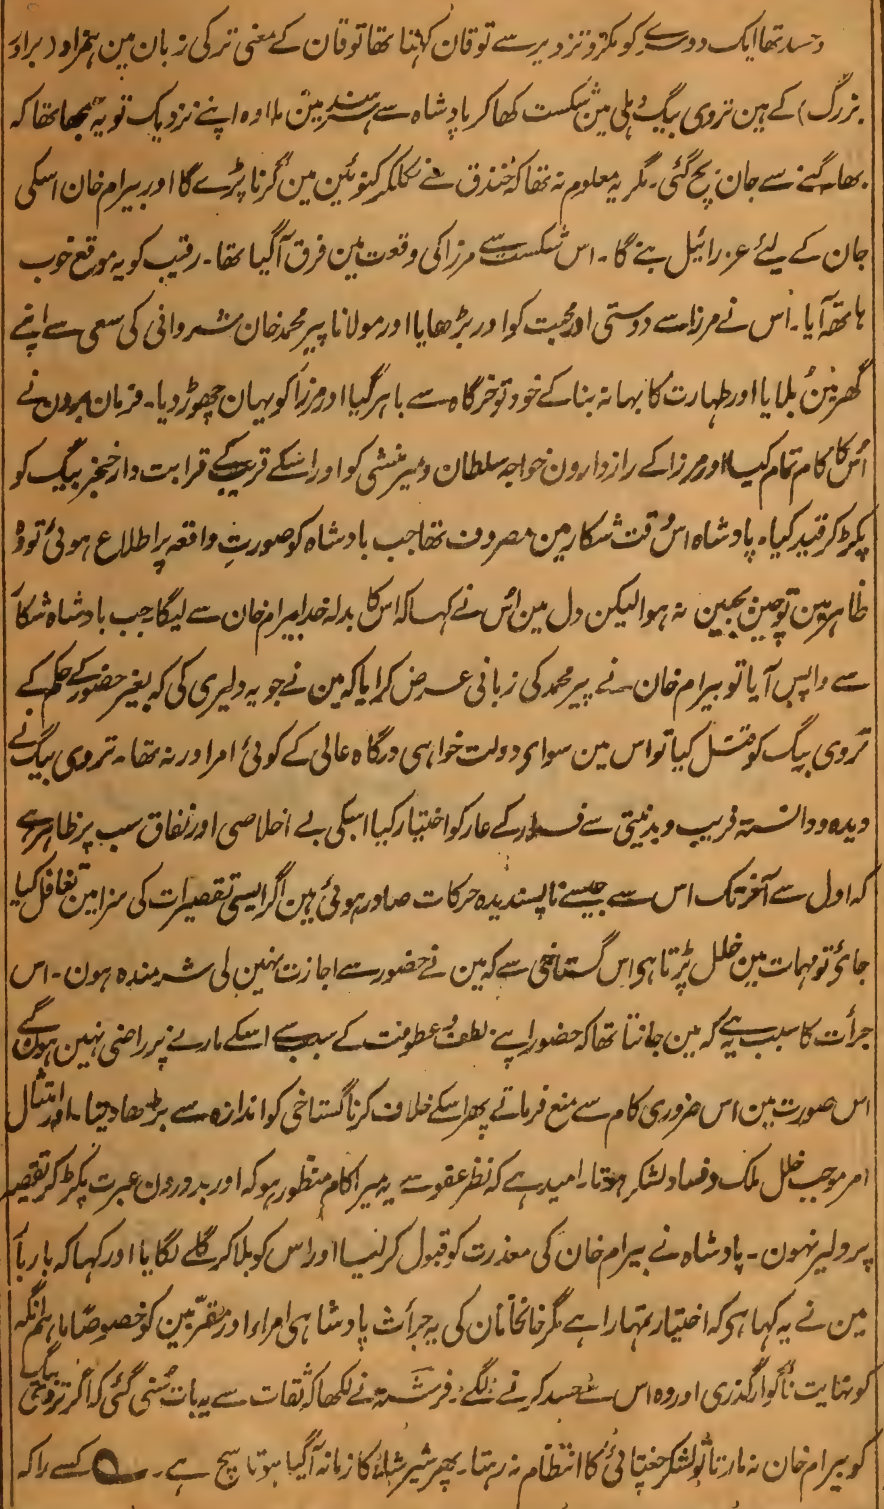 وحسد تھا ایک دوسرے کو مکر و تزویر سے توقان کہتا تھا توقان کے معنی ترکی زبان مین ہمزاد (برادر
بزرگ) کے ہین تروی بیگ دہلی مین شکست کھا کر پادشاہ سے سرہند مین ملا وہ اپنے نزدیک تو یہ سمجھا تھا کہ
بھاگنے سے جان بچ گئی۔ مگر یہ معلوم نہ تھا کہ خندق سے نکلکر کنوئین مین گرنا پڑے گا اور بیرام خان اسکی
جان کے لیٔے عزرائیل بنے گا۔ اس شکست سے مرزا کی وقعت مین فرق آگیا تھا۔ رقیب کو یہ موقع خوب
ہاتھ آیا۔ اُس نے مرزا سے دوستی اور محبت کو اور بڑھایا اور مولانا پیر محمد خان شروانی کی سعی سے اپنے
گھر مین بلایا اور طہارت کا بہانہ بنا کے خود تو خرگاہ سے باہر گیا اور مرزا کو یہان چھوڑ دیا۔ فرمان برون نے
اُس کا کام تمام کیا اور مرزا کے رازدارون خواجہ سلطان و میر منشی کو اور اسکے قریب کے قرابت دار خنجر بیگ کو
پکڑ کر قید کیا۔ پادشاہ اس وقت شکار مین مصروف تھا جب بادشاہ کو صورت واقعہ پر اطلاع ہوئی تو وہ
ظاہر مین تو چین بجبین نہ ہوا لیکن دل مین اُس نے کہا کہ اس کا بدلہ خدا بیرام خان سے لیگا جب بادشاہ شکار
سے واپس آیا تو بیرام خان نے پیر محمد کی زبانی عرض کرایا کہ مین نے جو یہ دلیری کی کہ بغیر حضور کے حکم کے
تروی بیگ کو قتل کیا تو اس مین سواے دولت خواہی درگاہ عالی کے کوئی امر اور نہ تھا۔ تروی بیگ نے
دیدہ و دانستہ فریب و بدنیتی سے فرار کے عار کو اختیار کیا اسکی بے اخلاصی اور نفاق سب پر ظاہر ہے
کہ اول سے آخر تک اس سے جیسے ناپسندیدہ حرکات صادر ہوئی ہین اگر ایسی تقصیرات کی سزا مین تغافل کیا
جائے تو مہمات مین خلل پڑتا ہی اس گستاخی سے کہ مین نے حضور سے اجازت نہین لی شرمندہ ہون۔ اس
جرأت کا سبب یہ ہے کہ مین جانتا تھا کہ حضور اپنے لطف و عطوفت کے سبب سے اسکے مارنے پر راضی نہین ہون گے
اس صورت مین اس ضروری کام سے منع فرماتے پھر اسکے خلاف کرنا گستاخی کو اندازہ سے بڑھا دیتا۔ اور امتثال
امر موجب خلل ملک و فساد لشکر ہوتا۔ امید ہے کہ نظر عفو سے یہ میرا کام منظور ہو کہ اور بدورون عبرت پکڑ کر تقصیر
پر دلیر نہون۔ پادشاہ نے بیرام خان کی معذرت کو قبول کر لیا اور اس کو بلا کر گلے لگایا اور کہا کہ بارہا
مین نے یہ کہا ہی کہ اختیار تمہارا ہے مگر خانخانان کی یہ جرأت پادشاہی امرا اور مقربین کو خصوصاً ماہم انگہ
کو نہایت ناگوار گذری اور وہ اس سے حسد کرنے لگے۔ فرشتہ نے لکھا کہ ثقات سے یہ بات سُنی گئی کہ اگر تروی بیگ
کو بیرام خان نہ مارتا تو لشکر چغتائی کا انتظام نہ رہتا۔ پھر شیر شاہ کا زمانہ آگیا ہوتا سچ ہے۔ کسے را کہ